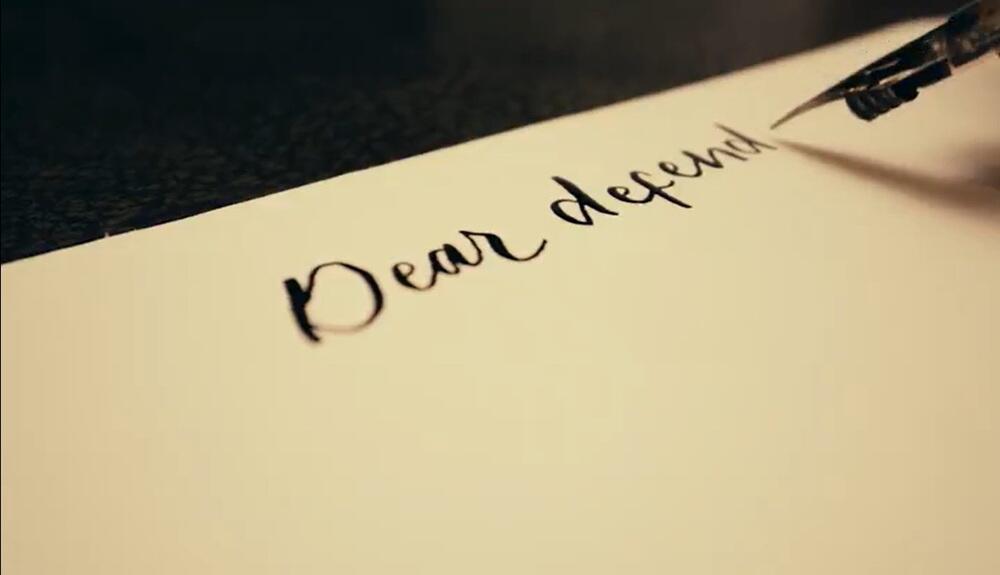 Dear defend